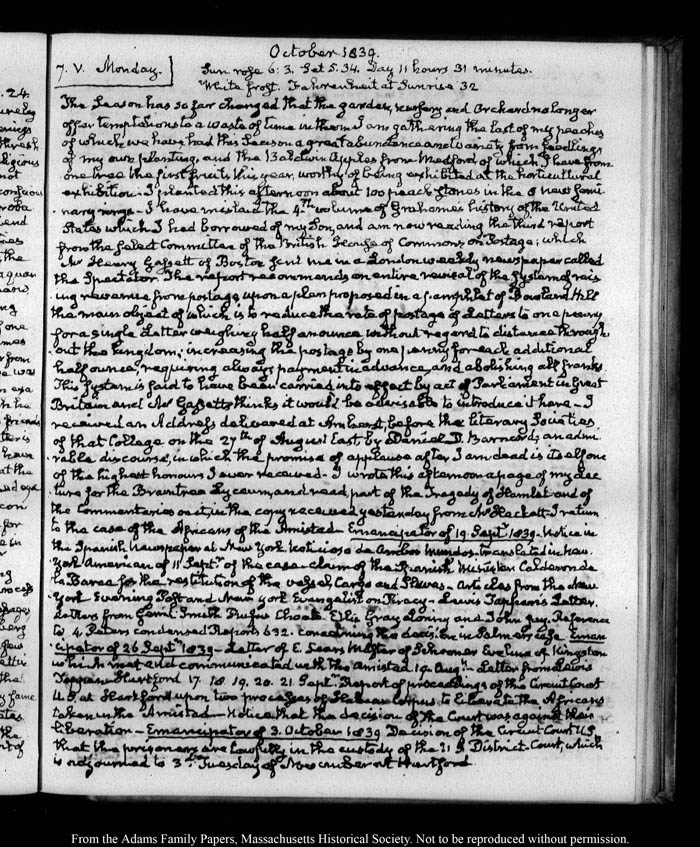 October 1839.
7. V. Monday.
Sun rose 6:3. Set 5.34. Day 11 hours 31 minutes.
White frost. Fahrenheit at Sunrise 32
The Season has so far changed that the garden, nursery and Orchard no longer
offer temptations to a waste of time in them I am gathering the last of my peaches
of which we have had this Season a great abundance and variety from seedlings
of my own planting, and the Baldwin Apples from Medford of which I have from
one tree the first fruits this year, worthy of being exhibited at the horticultural
exhibition. I planted this afternoon about 100 peach stones in the new Semi
nary range - I have mislaid the 4th volume of Grahame's history of the United
States which I had borrowed of my Son, and am now reading the third report
from the select Committee of the British House of Commons, on Postage; which
Mr Henry Gassett of Boston sent me in a London weekly newspaper called
the Spectator. The report recommends an entire revisal of the System of rais
ing revenue from postage, upon a plan proposed in a pamphlet of Rowland Hill
the main object of which is to reduce the rate of postage of Letters to one penny
for a single Letter weighing half an ounce without regard to distance through
out the kingdom; increasing the postage by one penny for each additional
half ounce, requiring always payment in advance, and abolishing all franks.
This System is said to have been carried into effect by act of Parliament in Great
Britain and Mr Gassett thinks it would be advisable to introduce it here - I
received an Address delivered at Amherst, before the literary Societies
of that College on the 27th of August last, by Daniel D. Barnard; an admi
rable discourse, in which the promise of applause after I am dead is itself one
of the highest honours I ever received - I wrote this afternoon a page of my Lec
ture for the Braintree Lyceum, and read part of the Tragedy of Hamlet and of
the Commentaries on it, in the copy received yesterday from Mr Hackett. I return
to the case of the Africans of the Amistad - Emancipator of 19 Septr 1839 - Notice in
the Spanish Newspaper at New York Noticioso de Ambos Mundos - translated in New-
York American of 11 Septr of the case - claim of the Spanish Minister Calderon de
la Barca for the restitution of the vessel, Cargo and Slaves - Articles from the New
York Evening Post and New York Evangelist on Piracy - Lewis Tappan's Letter.
Letters from Gerrit Smith Rufus Choate Ellis Gray Loring and John Jay. Reference
to 4 Peters condensed Reports 632. concerning the decision in Palmer's case Eman
cipator of 26 Septr 1839 - Letter of E. Sears Master of Schooner Eveline of Kingston
which met and communicated with the Amistad 19 Augt - Letter from Lewis
Tappan Hartford 17. 18. 19. 20. 21 Septr Report of proceedings of the Circuit Court
U.S. at Hartford upon two processes of Habeas Corpus to liberate the Africans
taken in the Amistad - Notice that the decision of the Court was against their
liberation - Emancipator of 3. October 1839 Decision of the Circuit Court U.S
that the prisoners are lawfully in the custody of the U.S District Court, which
is adjourned to 3d Tuesday of November at Hartford
From the Adams Family Papers, Massachusetts Historical Society. Not to be reproduced without permission.